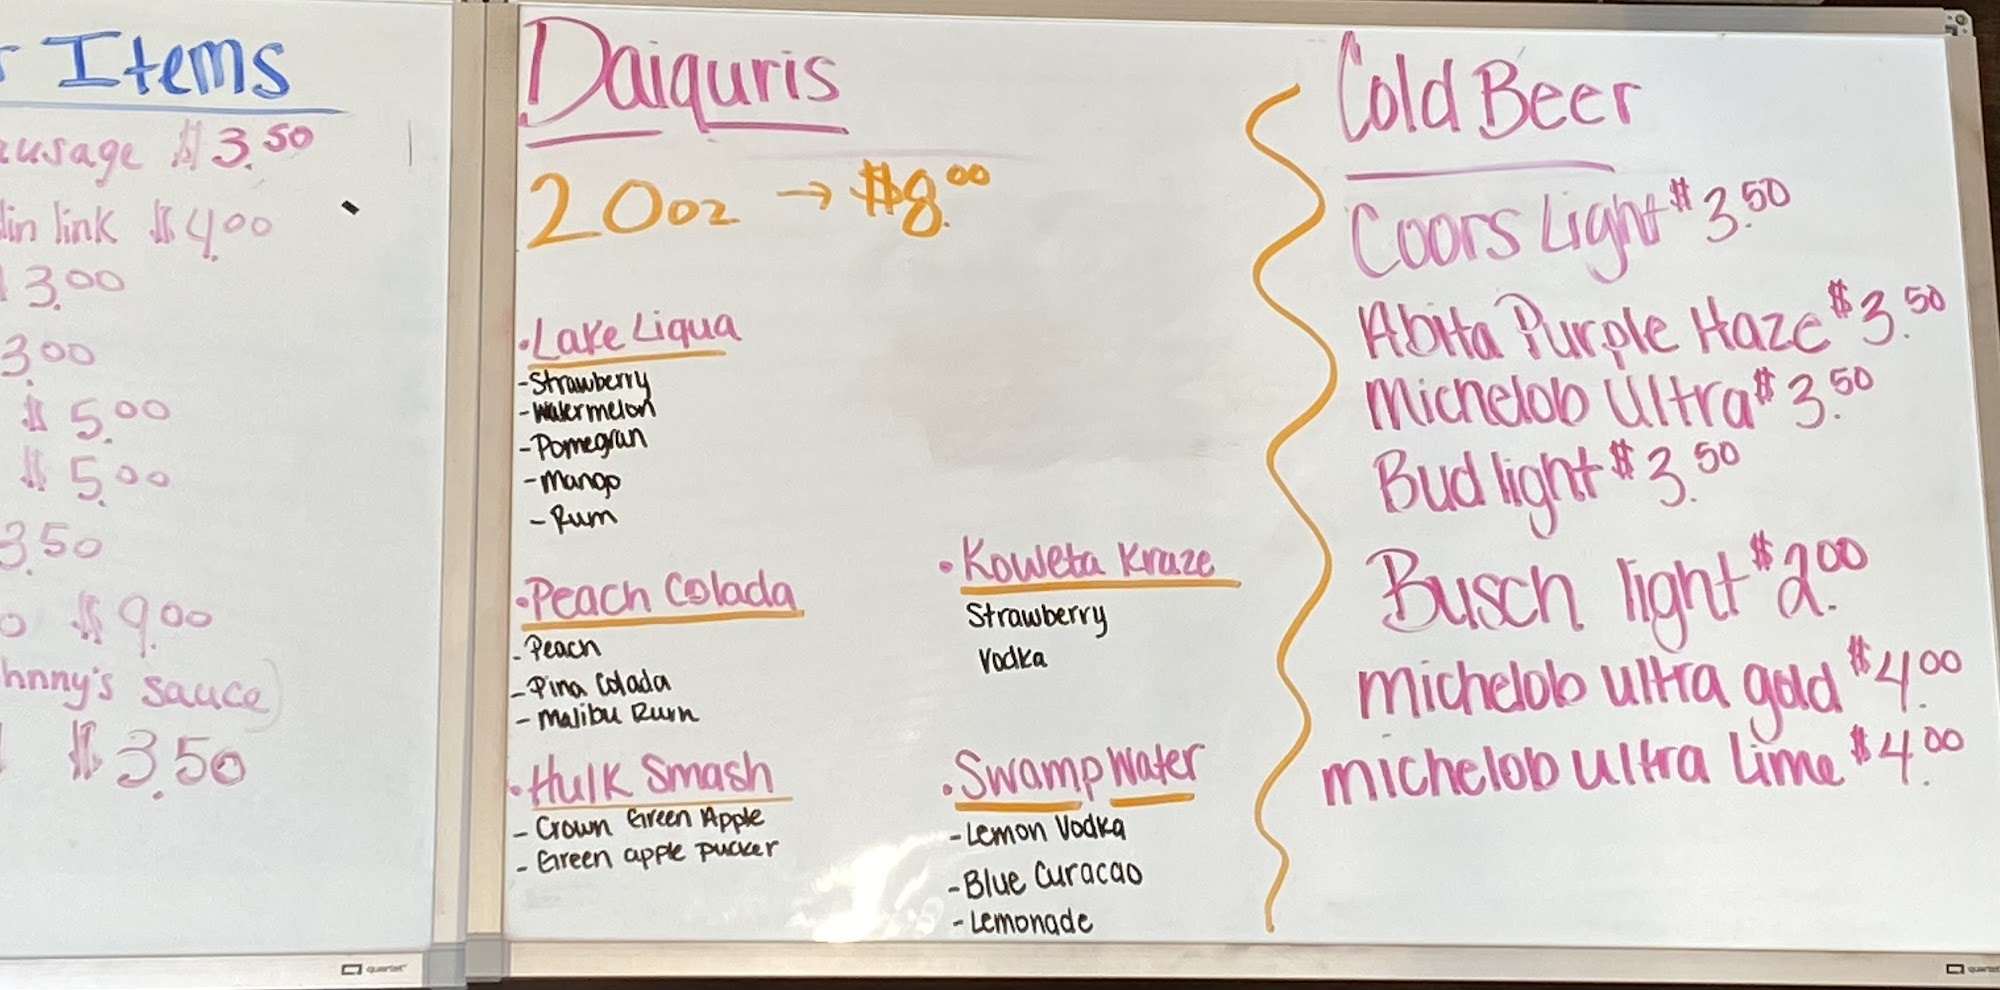 Items
$3.50
link $4.00
3.00
3.00
$5.00
$5.00
3.50
$9.00
sauce)
$3.50
quartet
Daiquris
20oz → $8.00
• Lake Liqua
- Strawberry
- Watermelon
- Pomegran
- Mango
- Rum
• Peach Colada
- Peach
- Pina Colada
- Malibu Rum
• Hulk Smash
- Crown Green Apple
- Green apple pucker
• Koweta Kraze
Strawberry
Vodka
• Swamp Water
- Lemon Vodka
- Blue Curacao
- Lemonade
Cold Beer
Coors Light $3.50
Abita Purple Haze $3.50
Michelob Ultra $3.50
Bud light $3.50
Busch light $2.00
michelob ultra gold $4.00
michelob ultra Lime $4.00
quartet